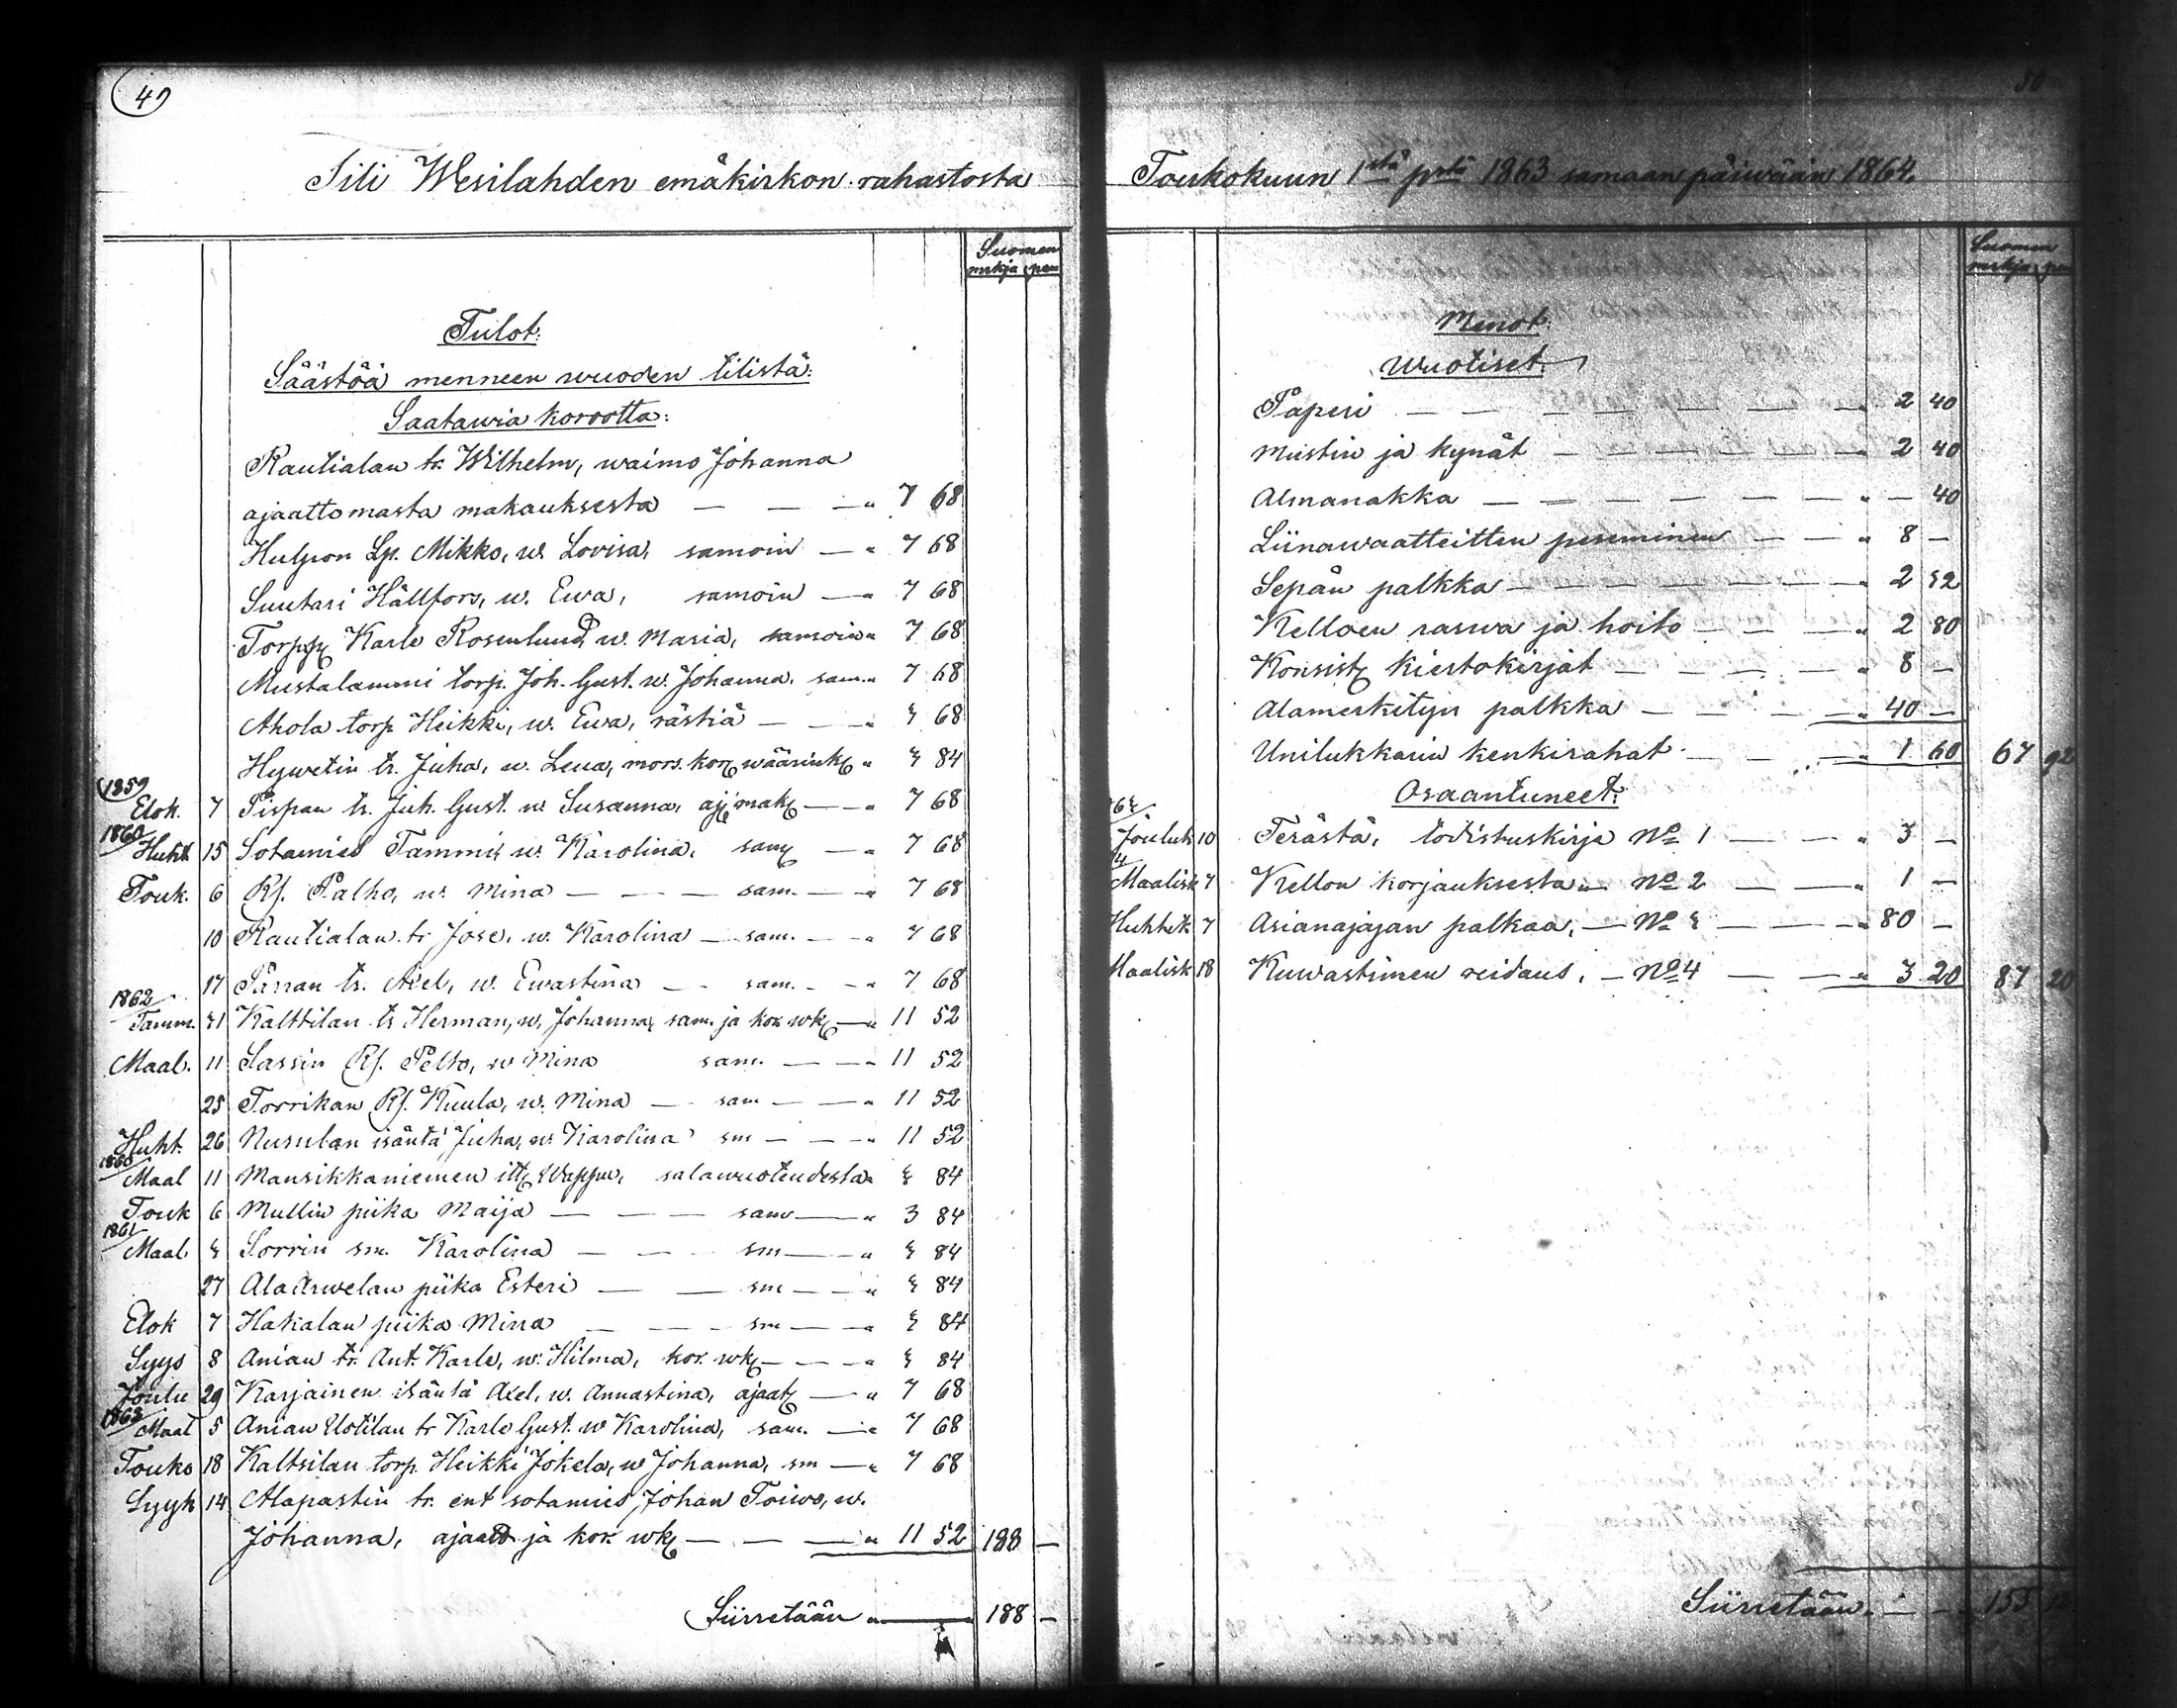 49
Tili Wesilahden emäkirkon rahastosta
Suomen
mrkja pen
Tulot:
Säästöä menneen wuoden tilistä:
Saatawia korootta:
Rautialan tr. Wilhelm, waimo Johanna
ajaattomasta makauksesta — — — " 7 68
Hulpon Lp. Mikko, w. Lovisa, samoin — " 7 68
Suutari Hällfors, w. Ewa, samoin — " 7 68
Torpp Karle Rosenlund w. Maria, samoin " 7 68
Mustalammi torp. Joh. Gust. w. Johanna. sam. " 7 68
Ahola torp Heikki, w. Ewa, rästiä — — " 3 68
Hywetin tr. Juha, w. Leua, mors. kor wäärink " 3 84
1859
Elok. 7 Pispan tr. Juh. Gust. w Susanna, aj mak — " 7 68
1860
Huht 15 Sotamies Tammi w. Karolina, sam — " 7 68
Touk. 6 Rf. Palho, w. Mina — — — sam. — " 7 68
10 Rautialan tr Jose, w. Karolina — sam. — " 7 68
17 Parran tr. Axel, w. Ewastina — — sam. — " 7 68
1862
Tamm. 31 Kalttilan tr Herman, w. Johanna, sam. ja kor wk — " 11 52
Maal. 11 Sassin Rf. Pelto, w Mina sam. — — " 11 52
25 Torrikan Rf. Kuula, w. Mina — sam — — " 11 52
Huht. 26 Nusulan isäntä Juha, w. Karolina sm — — " 11 52
1860
Maal 11 Mansikkaniemen itt Wappu, salawuoteudesta " 3 84
Touk 6 Mullin piika Maija — — — sam — " 3 84
1861
Maal. 3 Sorrin sm. Karolina — — sm — " 3 84
27 Ala Arwelan piika Esteri — — sm — " 3 84
Elok 7 Hakalan piika Mina — — — sm — " 3 84
Syys 8 Anian tr. Ant. Karle, w. Hilma, kor. wk — — " 3 84
Joulu 29 Karjainen isäntä Axel, w. Annastina, ajaat — " 7 68
1863
Maal 5 Anian Uotilan tr Karle Gust. w Karolina, sam. — " 7 68
Touko 18 Kaltsilan torp. Heikki Jokela, w Johanna, sm — " 7 68
Syyk 14 Alapastin tr. ent sotamies Johan Toiwo, w.
Johanna, ajaatt ja kor. wk — — — " 11 52 188 —
Siirretään " — 188 —
50
Toukokuun 1stä pstä 1863 samaan päiwään 1864.
Suomen
mrkja pen
Menot:
Wuotiset:
Paperi — — — — — " 2 40
Mustin ja kynät — — — — " 2 40
Almanakka — — — — — " — 40
Liinawaatteitten peseminen — — " 8 —
Sepän palkka — — — — " 2 32
Kelloen raswa ja hoito — — — " 2 80
Konsist kiertokirjat — — — " 8 —
Alamerkityn palkka — — — " 40 —
Unilukkarin kenkirahat — — " 1 60 67 92
Osaantuneet:
Jouluk 10 Terästä, todistuskirja No 1 — — " 3 —
Maalisk 7 Kellon korjauksesta " No 2 — — " 1 —
Huhtik 7 Asianajajan palkaa, — No 3 — — " 80 —
Maalisk 18 Kuwastimen reidaus, — No 4 — — " 3 20 87 20
Siirretään " — 155 12